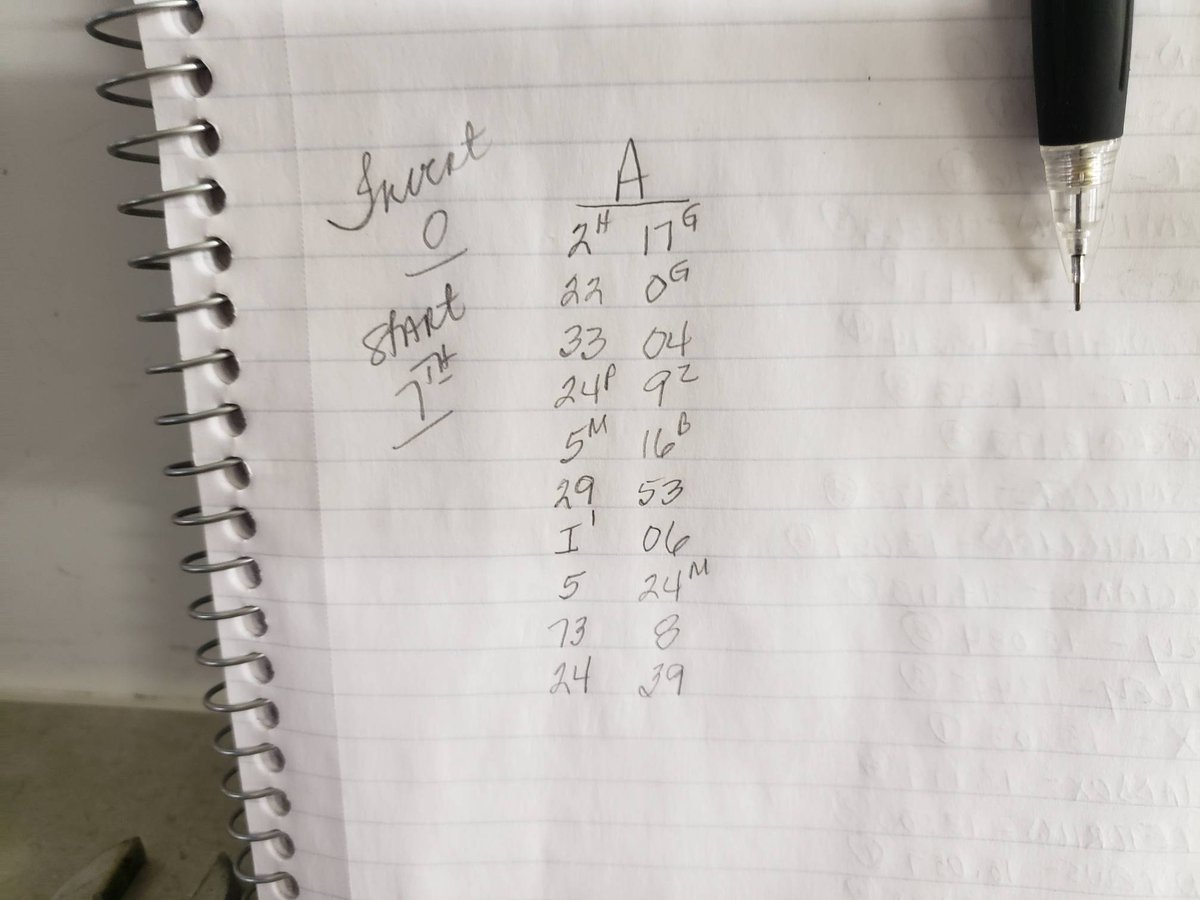 Invert
0
START
7TH
A
2H 17G
22 0G
33 04
24P 9Z
5M 16B
29 53
I' 06
5 24M
73 8
24 39